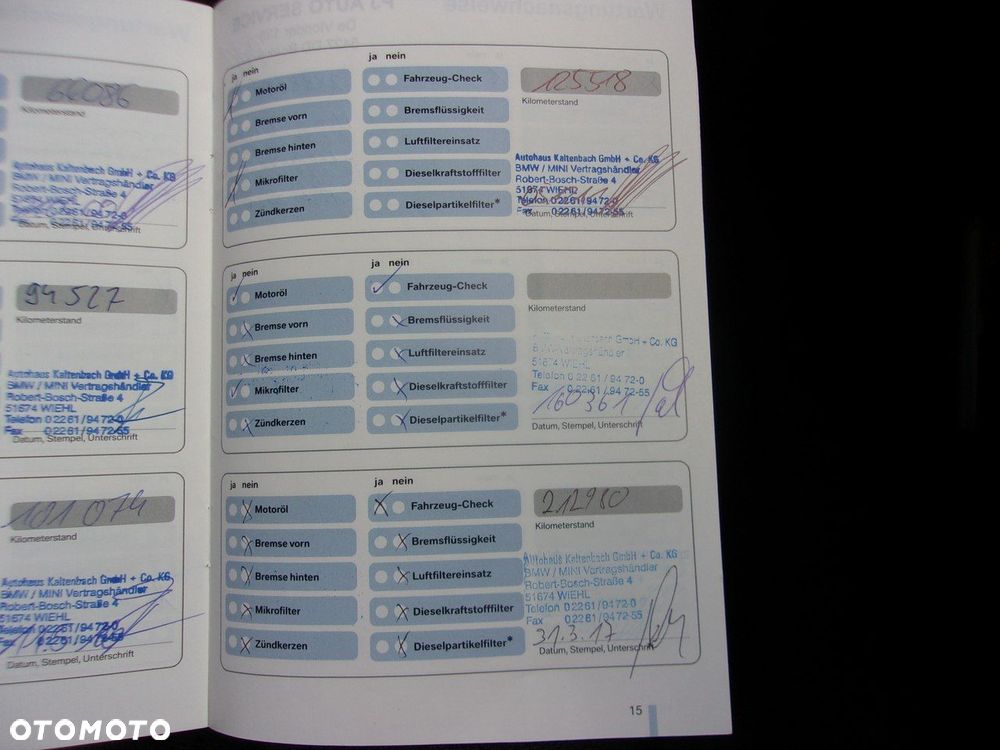 66086
Kilometerstand
Autohaus Kaltenbach GmbH + Co. KG
BMW / MINI Vertragshändler
Robert-Bosch-Straße 4
51674 WIEHL
Telefon 0 22 61 / 94 72-0
Fax 0 22 61 / 94 72-55
Datum, Stempel, Unterschrift
94 527
Kilometerstand
Autohaus Kaltenbach GmbH + Co. KG
BMW / MINI Vertragshändler
Robert-Bosch-Straße 4
51674 WIEHL
Telefon 0 22 61 / 94 72-0
Fax 0 22 61 / 94 72-55
Datum, Stempel, Unterschrift
101 074
Kilometerstand
Autohaus Kaltenbach GmbH + Co. KG
BMW / MINI Vertragshändler
Robert-Bosch-Straße 4
51674 WIEHL
Telefon 0 22 61 / 94 72-0
Fax 0 22 61 / 94 72-55
Datum, Stempel, Unterschrift
ja nein
Motoröl
Bremse vorn
Bremse hinten
Mikrofilter
Zündkerzen
ja nein
Fahrzeug-Check
Bremsflüssigkeit
Luftfiltereinsatz
Dieselkraftstofffilter
Dieselpartikelfilter*
125518
Kilometerstand
Autohaus Kaltenbach GmbH + Co. KG
BMW / MINI Vertragshändler
Robert-Bosch-Straße 4
51674 WIEHL
Telefon 0 22 61 / 94 72-0
Fax 0 22 61 / 94 72-55
Datum, Stempel, Unterschrift
ja nein
Motoröl
Bremse vorn
Bremse hinten
Mikrofilter
Zündkerzen
ja nein
Fahrzeug-Check
Bremsflüssigkeit
Luftfiltereinsatz
Dieselkraftstofffilter
Dieselpartikelfilter*
Kilometerstand
GmbH + Co. KG
51674 WIEHL
Telefon 0 22 61 / 94 72-0
Fax 0 22 61 / 94 72-55
160361
Datum, Stempel, Unterschrift
ja nein
Motoröl
Bremse vorn
Bremse hinten
Mikrofilter
Zündkerzen
ja nein
Fahrzeug-Check
Bremsflüssigkeit
Luftfiltereinsatz
Dieselkraftstofffilter
Dieselpartikelfilter*
212980
Kilometerstand
Autohaus Kaltenbach GmbH + Co. KG
BMW / MINI Vertragshändler
Robert-Bosch-Straße 4
51674 WIEHL
Telefon 0 22 61 / 94 72-0
Fax 0 22 61 / 94 72-55
31.3.17
Datum, Stempel, Unterschrift
15
OTOMOTO